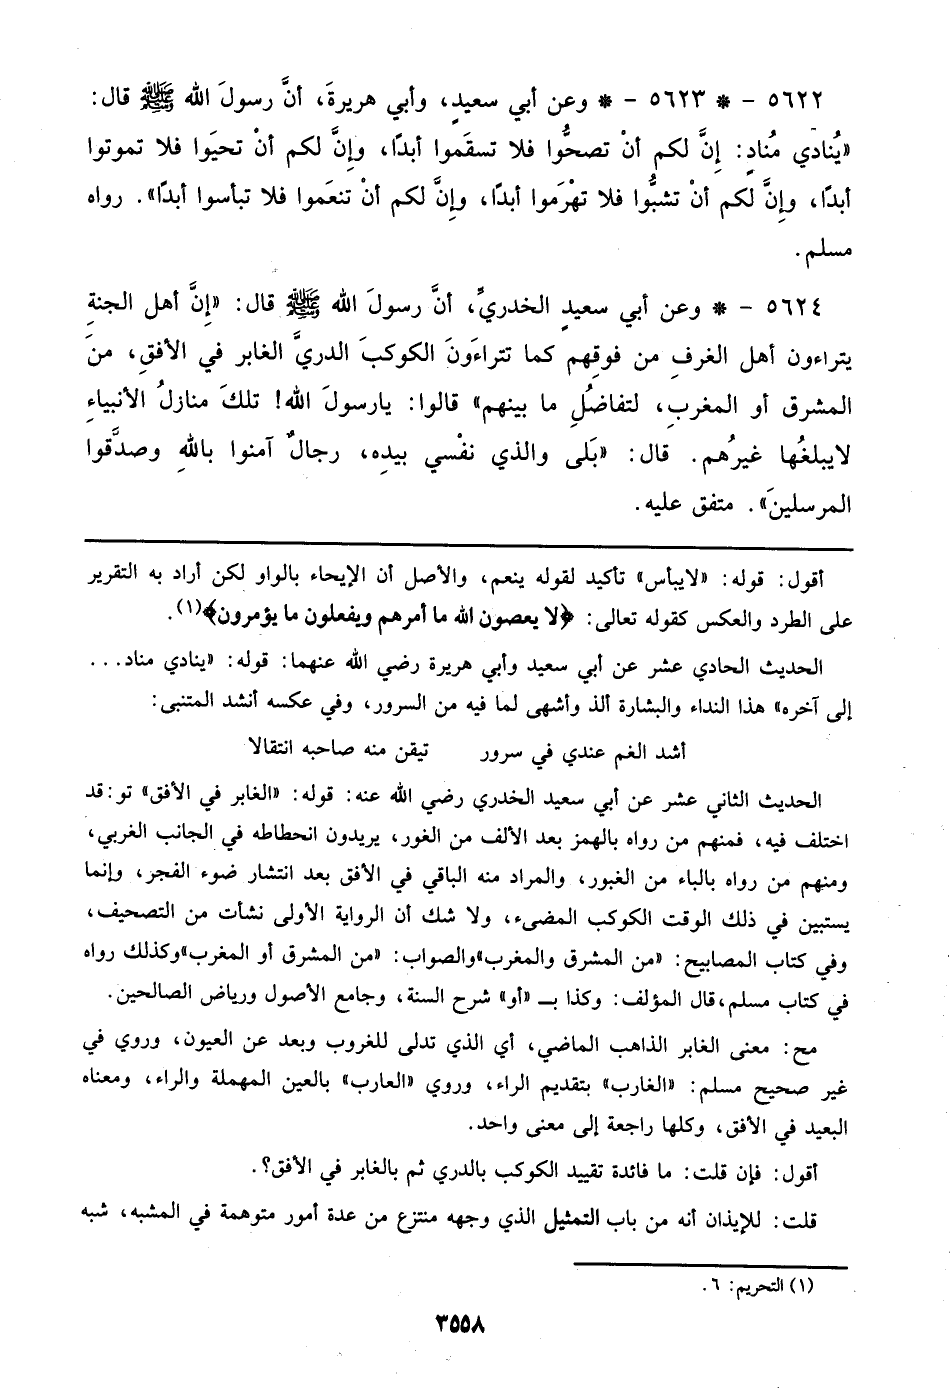 ٥٦٢٢ - * ٥٦٢٣ - * وعن أبي سعيدٍ، وأبي هريرةَ، أنَّ رسولَ الله ﷺ قال:
«يُنادي مُنادٍ: إنَّ لكم أنْ تصحُّوا فلا تسقَموا أبدًا، وإنَّ لكم أنْ تحيَوا فلا تموتوا
أبدًا، وإنَّ لكم أنْ تشبُّوا فلا تهْرَموا أبدًا، وإنَّ لكم أنْ تنعَموا فلا تبأسوا أبدًا». رواه
مسلم.
٥٦٢٤ - * وعن أبي سعيدٍ الخدريِّ، أنَّ رسولَ الله ﷺ قال: «إنَّ أهل الجنةِ
يتراءون أهل الغرفِ من فوقِهم كما تتراءَونَ الكوكبَ الدريَّ الغابر في الأفقِ، منَ
المشرق أو المغربِ، لتفاضُلِ ما بينهم» قالوا: يارسولَ الله! تلكَ منازلُ الأنبياءِ
لايبلغُها غيرُهم. قال: «بَلى والذي نفْسي بيدِه، رجالٌ آمنوا باللهِ وصدَّقوا
المرسلينَ». متفق عليه.
أقول: قوله: «لايبأس» تأكيد لقوله ينعم، والأصل أن الإيحاء بالواو لكن أراد به التقرير
على الطرد والعكس كقوله تعالى: ﴿لا يعصون الله ما أمرهم ويفعلون ما يؤمرون﴾(١).
الحديث الحادي عشر عن أبي سعيد وأبي هريرة رضي الله عنهما: قوله: «ينادي مناد...
إلى آخره» هذا النداء والبشارة ألذ وأشهى لما فيه من السرور، وفي عكسه أنشد المتنبى:
أشد الغم عندي في سرور تيقن منه صاحبه انتقالا
الحديث الثاني عشر عن أبي سعيد الخدري رضي الله عنه: قوله: «الغابر في الأفق» تو: قد
اختلف فيه، فمنهم من رواه بالهمز بعد الألف من الغور، يريدون انحطاطه في الجانب الغربي،
ومنهم من رواه بالباء من الغبور، والمراد منه الباقي في الأفق بعد انتشار ضوء الفجر، وإنما
يستبين في ذلك الوقت الكوكب المضىء، ولا شك أن الرواية الأولى نشأت من التصحيف،
وفي كتاب المصابيح: «من المشرق والمغرب»والصواب: «من المشرق أو المغرب»وكذلك رواه
في كتاب مسلم،قال المؤلف: وكذا بـ «أو» شرح السنة، وجامع الأصول ورياض الصالحين.
مح: معنى الغابر الذاهب الماضي، أي الذي تدلى للغروب وبعد عن العيون، وروي في
غير صحيح مسلم: «الغارب» بتقديم الراء، وروي «العارب» بالعين المهملة والراء، ومعناه
البعيد في الأفق، وكلها راجعة إلى معنى واحد.
أقول: فإن قلت: ما فائدة تقييد الكوكب بالدري ثم بالغابر في الأفق؟.
قلت: للإيذان أنه من باب التمثيل الذي وجهه منتزع من عدة أمور متوهمة في المشبه، شبه
(١) التحريم: ٦.
٣٥٥٨